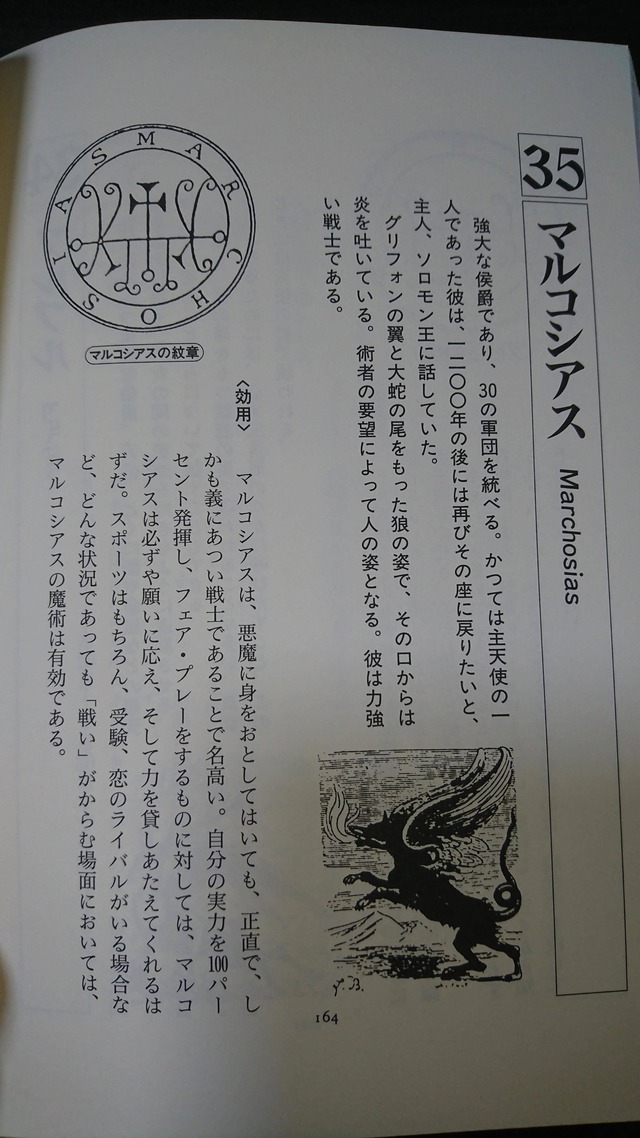 35
マルコシアス Marchosias
強大な侯爵であり、30の軍団を統べる。かつては主天使の一
人であった彼は、一二〇〇年の後には再びその座に戻りたいと、
主人、ソロモン王に話していた。
グリフォンの翼と大蛇の尾をもった狼の姿で、その口からは
炎を吐いている。術者の要望によって人の姿となる。彼は力強
い戦士である。
MARCHOSIAS
マルコシアスの紋章
〈効用〉
マルコシアスは、悪魔に身をおとしてはいても、正直で、し
かも義にあつい戦士であることで名高い。自分の実力を100パー
セント発揮し、フェア・プレーをするものに対しては、マルコ
シアスは必ずや願いに応え、そして力を貸しあたえてくれるは
ずだ。スポーツはもちろん、受験、恋のライバルがいる場合な
ど、どんな状況であっても「戦い」がからむ場面においては、
マルコシアスの魔術は有効である。
164